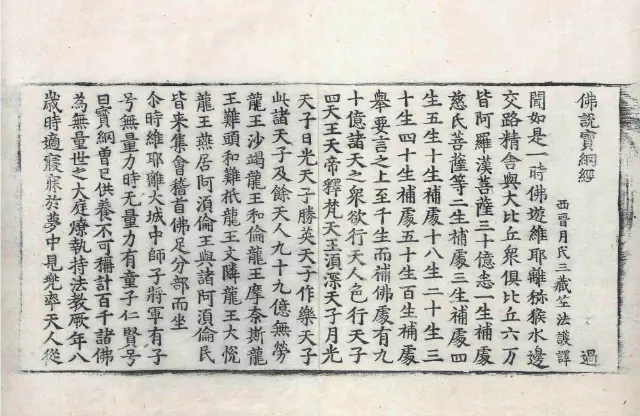 佛說寶網經 過
西晉月氏三藏竺法護譯
聞如是一時佛遊維耶離獼猴水邊
交路精舍與大比丘衆俱比丘六万
皆阿羅漢菩薩三十億悉一生補處
慈氏菩薩等二生補處三生補處四
生五生十生補處十八生二十生三
十生四十生補處五十生百生補處
舉要言之上至千生而補佛處有九
十億諸天之衆欲行天人色行天子
四天王天帝釋梵天王須深天子月光
天子日光天子勝英天子作樂天子
此諸天子及餘天人九十九億無勞
龍王沙竭龍王和倫龍王摩奈斯龍
王難頭和難龍王文隣龍王大悅
龍王燕居阿須倫王與諸阿須倫民
皆来集會稽首佛足分部而坐
尒時維耶離大城中師子將軍有子
号無量力時無量力有童子仁賢号
曰寶網曾已供養不可稱計百千諸佛
為無量世之大庭燎執持法教厥年八
歲時適寢寐於夢中見兜率天人從